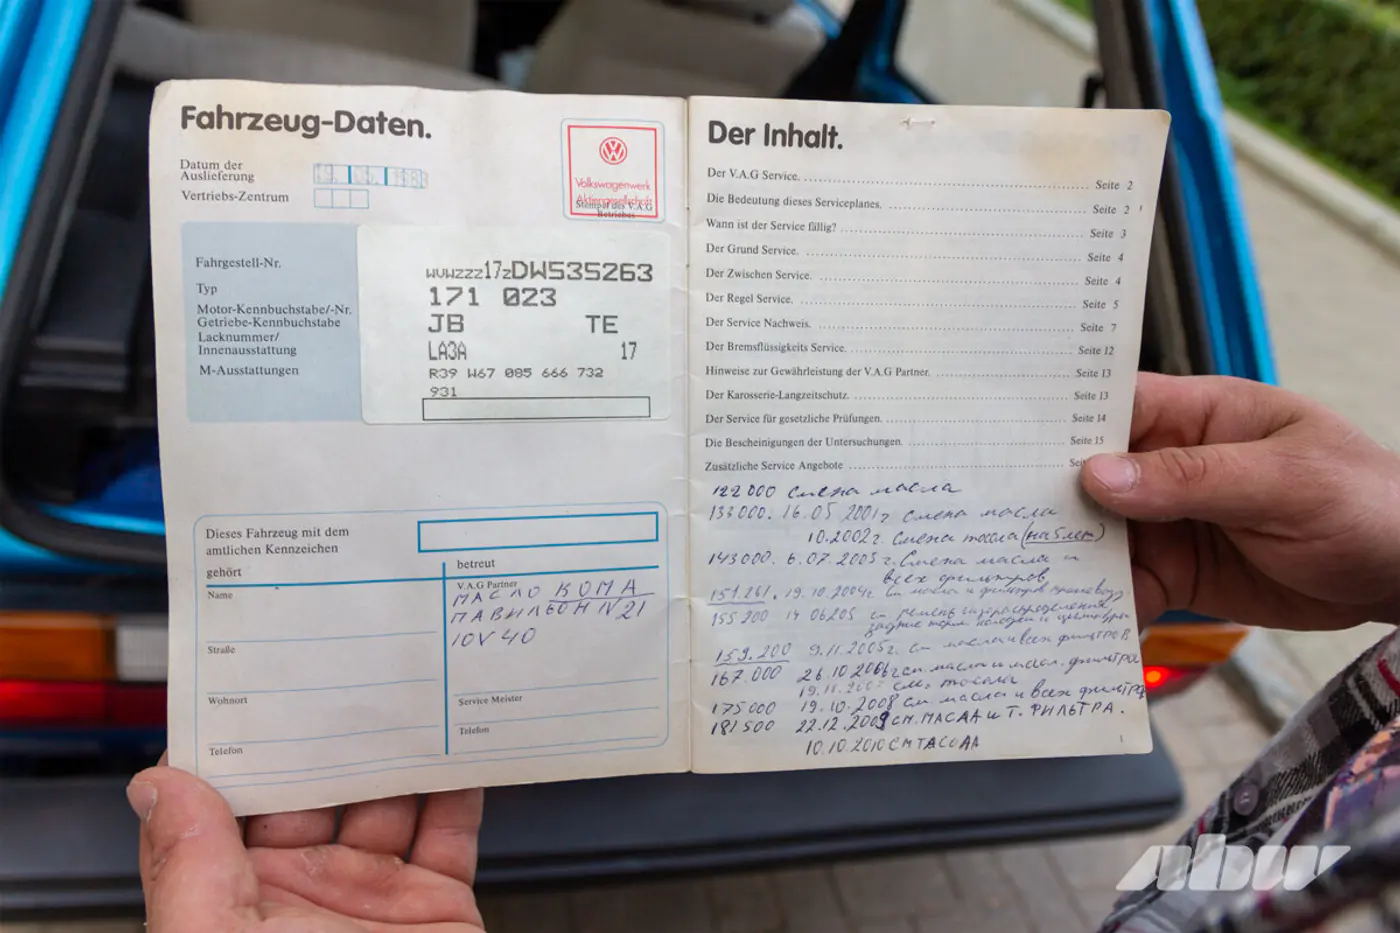 Fahrzeug-Daten.
Datum der
Auslieferung
Vertriebs-Zentrum
Volkswagenwerk
Aktiengesellschaft
Stempel des V.A.G
Betriebes
Fahrgestell-Nr.
WVWZZZ17ZDW535263
Typ
171 023
Motor-Kennbuchstabe/-Nr.
Getriebe-Kennbuchstabe
JB TE
Lacknummer/
Innenausstattung
LA3A 17
M-Ausstattungen
R39 W67 085 666 732
931
Dieses Fahrzeug mit dem
amtlichen Kennzeichen
gehört
betreut
Name
Straße
Wohnort
Telefon
V.A.G Partner
МАСЛО КОМА
ПАВИЛЬОН N21
10V40
Service Meister
Telefon
Der Inhalt.
Der V.A.G Service. Seite 2
Die Bedeutung dieses Serviceplanes. Seite 2
Wann ist der Service fällig? Seite 3
Der Grund Service. Seite 4
Der Zwischen Service. Seite 4
Der Regel Service. Seite 5
Der Service Nachweis. Seite 7
Der Bremsflüssigkeits Service. Seite 12
Hinweise zur Gewährleistung der V.A.G Partner. Seite 13
Der Karosserie-Langzeitschutz. Seite 13
Der Service für gesetzliche Prüfungen. Seite 14
Die Bescheinigungen der Untersuchungen. Seite 15
Zusätzliche Service Angebote
122000 смена масла
133000. 16.05 2001г смена масла
10.2002г. Смена тосола (на 5 лет)
143000. 6.07.2003г. Смена масла и
всех фильтров
151261. 19.10.2004г см масла и фильтров
155200 14 06205 см ремень газораспределения
159.200 9.11.2005г. см масла и всех фильтров
167.000 26.10 2006г см. масла и масл. фильтра
см. тосола
175000 19.10.2008 см. масла и всех фильтро
181500 22.12.2009 СМ. МАСЛА и Т. ФИЛЬТРА.
10.10.2010 СМ ТАСОЛА
1